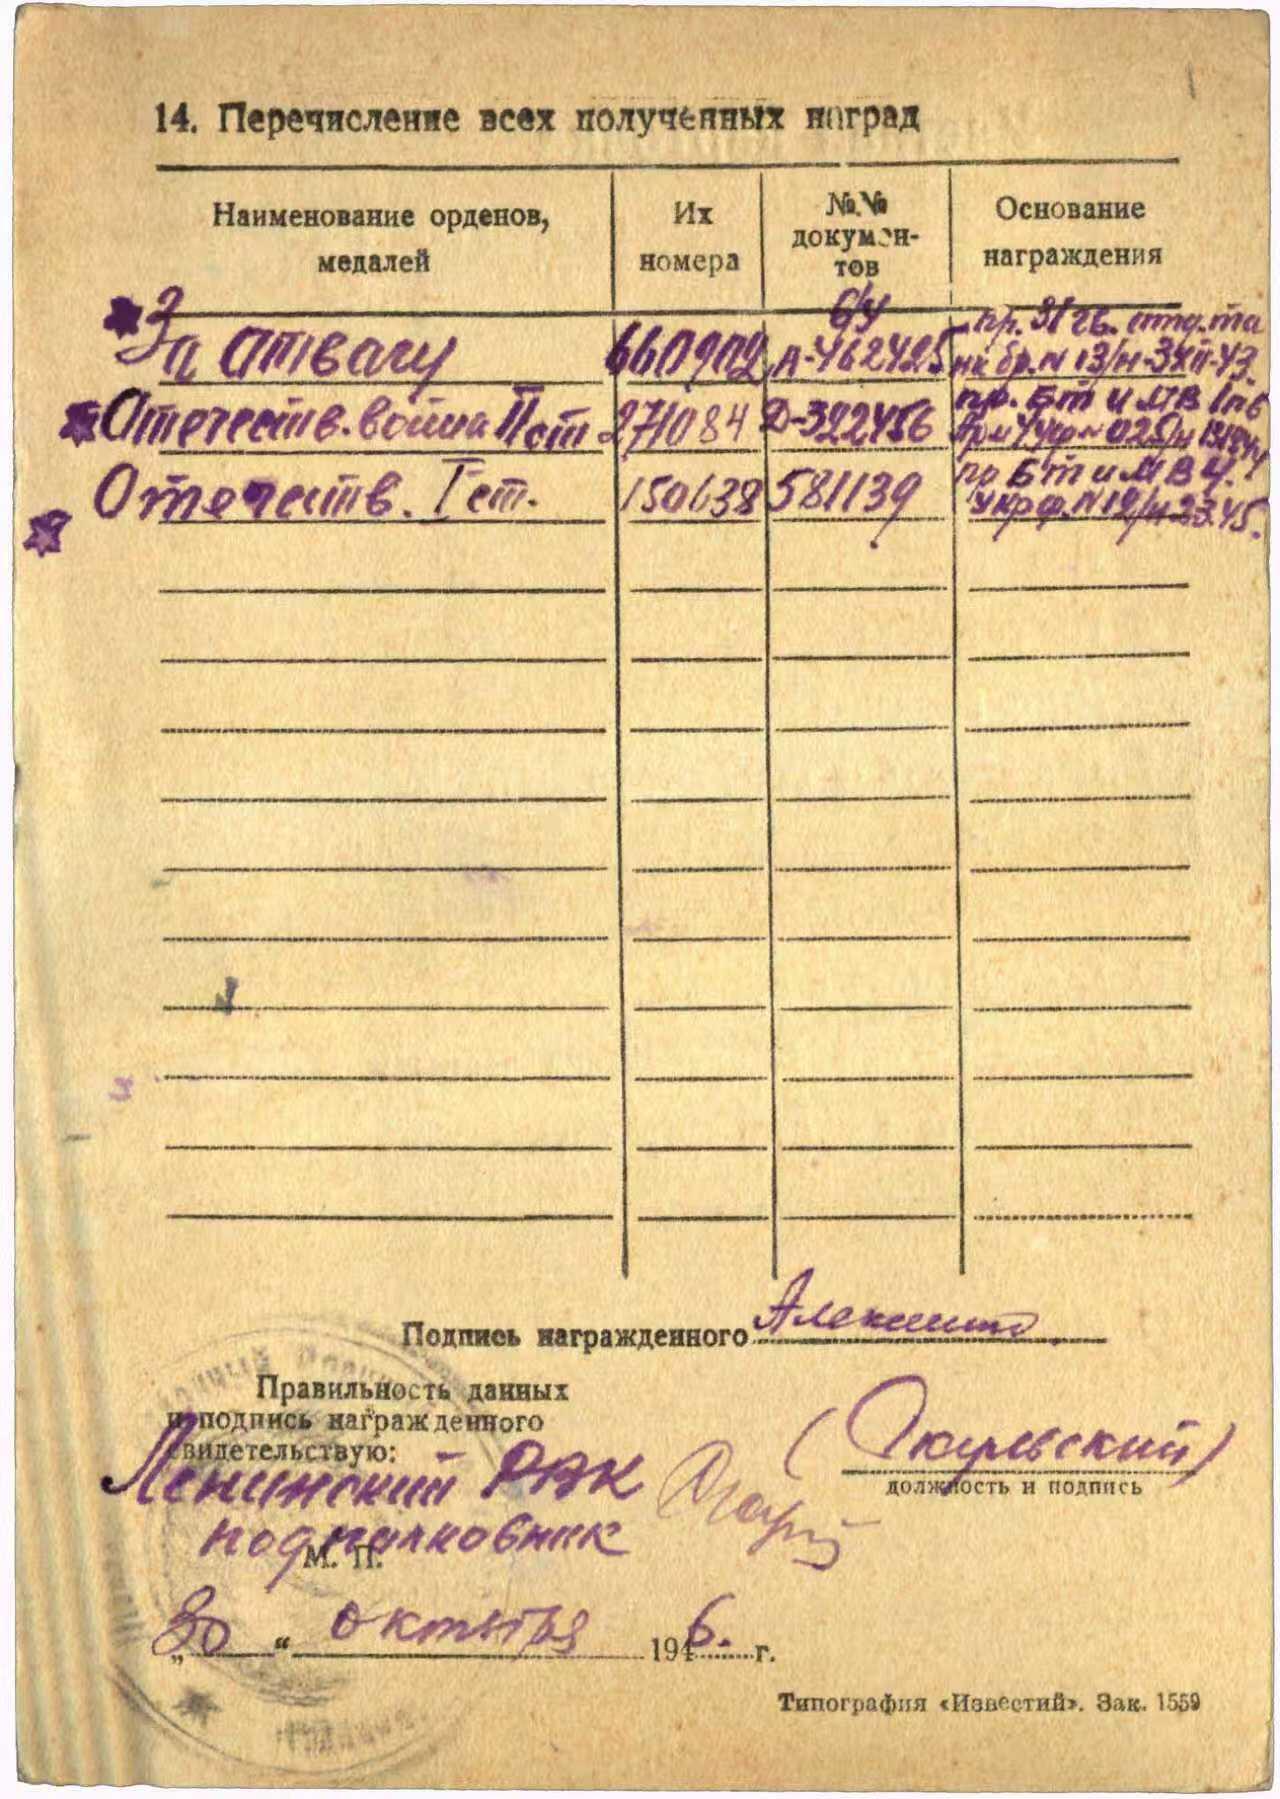 14. Перечисление всех полученных наград
Наименование орденов, медалей
Их номера
№.№ документов
Основание награждения
За Отвагу 660902 б/у А-462425 пр. 31 гв. отд. та
нк бр. N 13/н-3 XII-43.
Отечеств. война II ст 271084 Д-322456 пр. БТ и МВ
4 укр N 025/н
Отечеств. I ст. 150638 581139 пр БТ и МВ 4.
Укр ф. N 19/н 45.
Подпись награжденного
Правильность данных
и подпись награжденного
свидетельствую:
Ленинский РВК
подполковник
должность и подпись
М. П.
„30“ октября 1946. г.
Типография «Известий». Зак. 1559